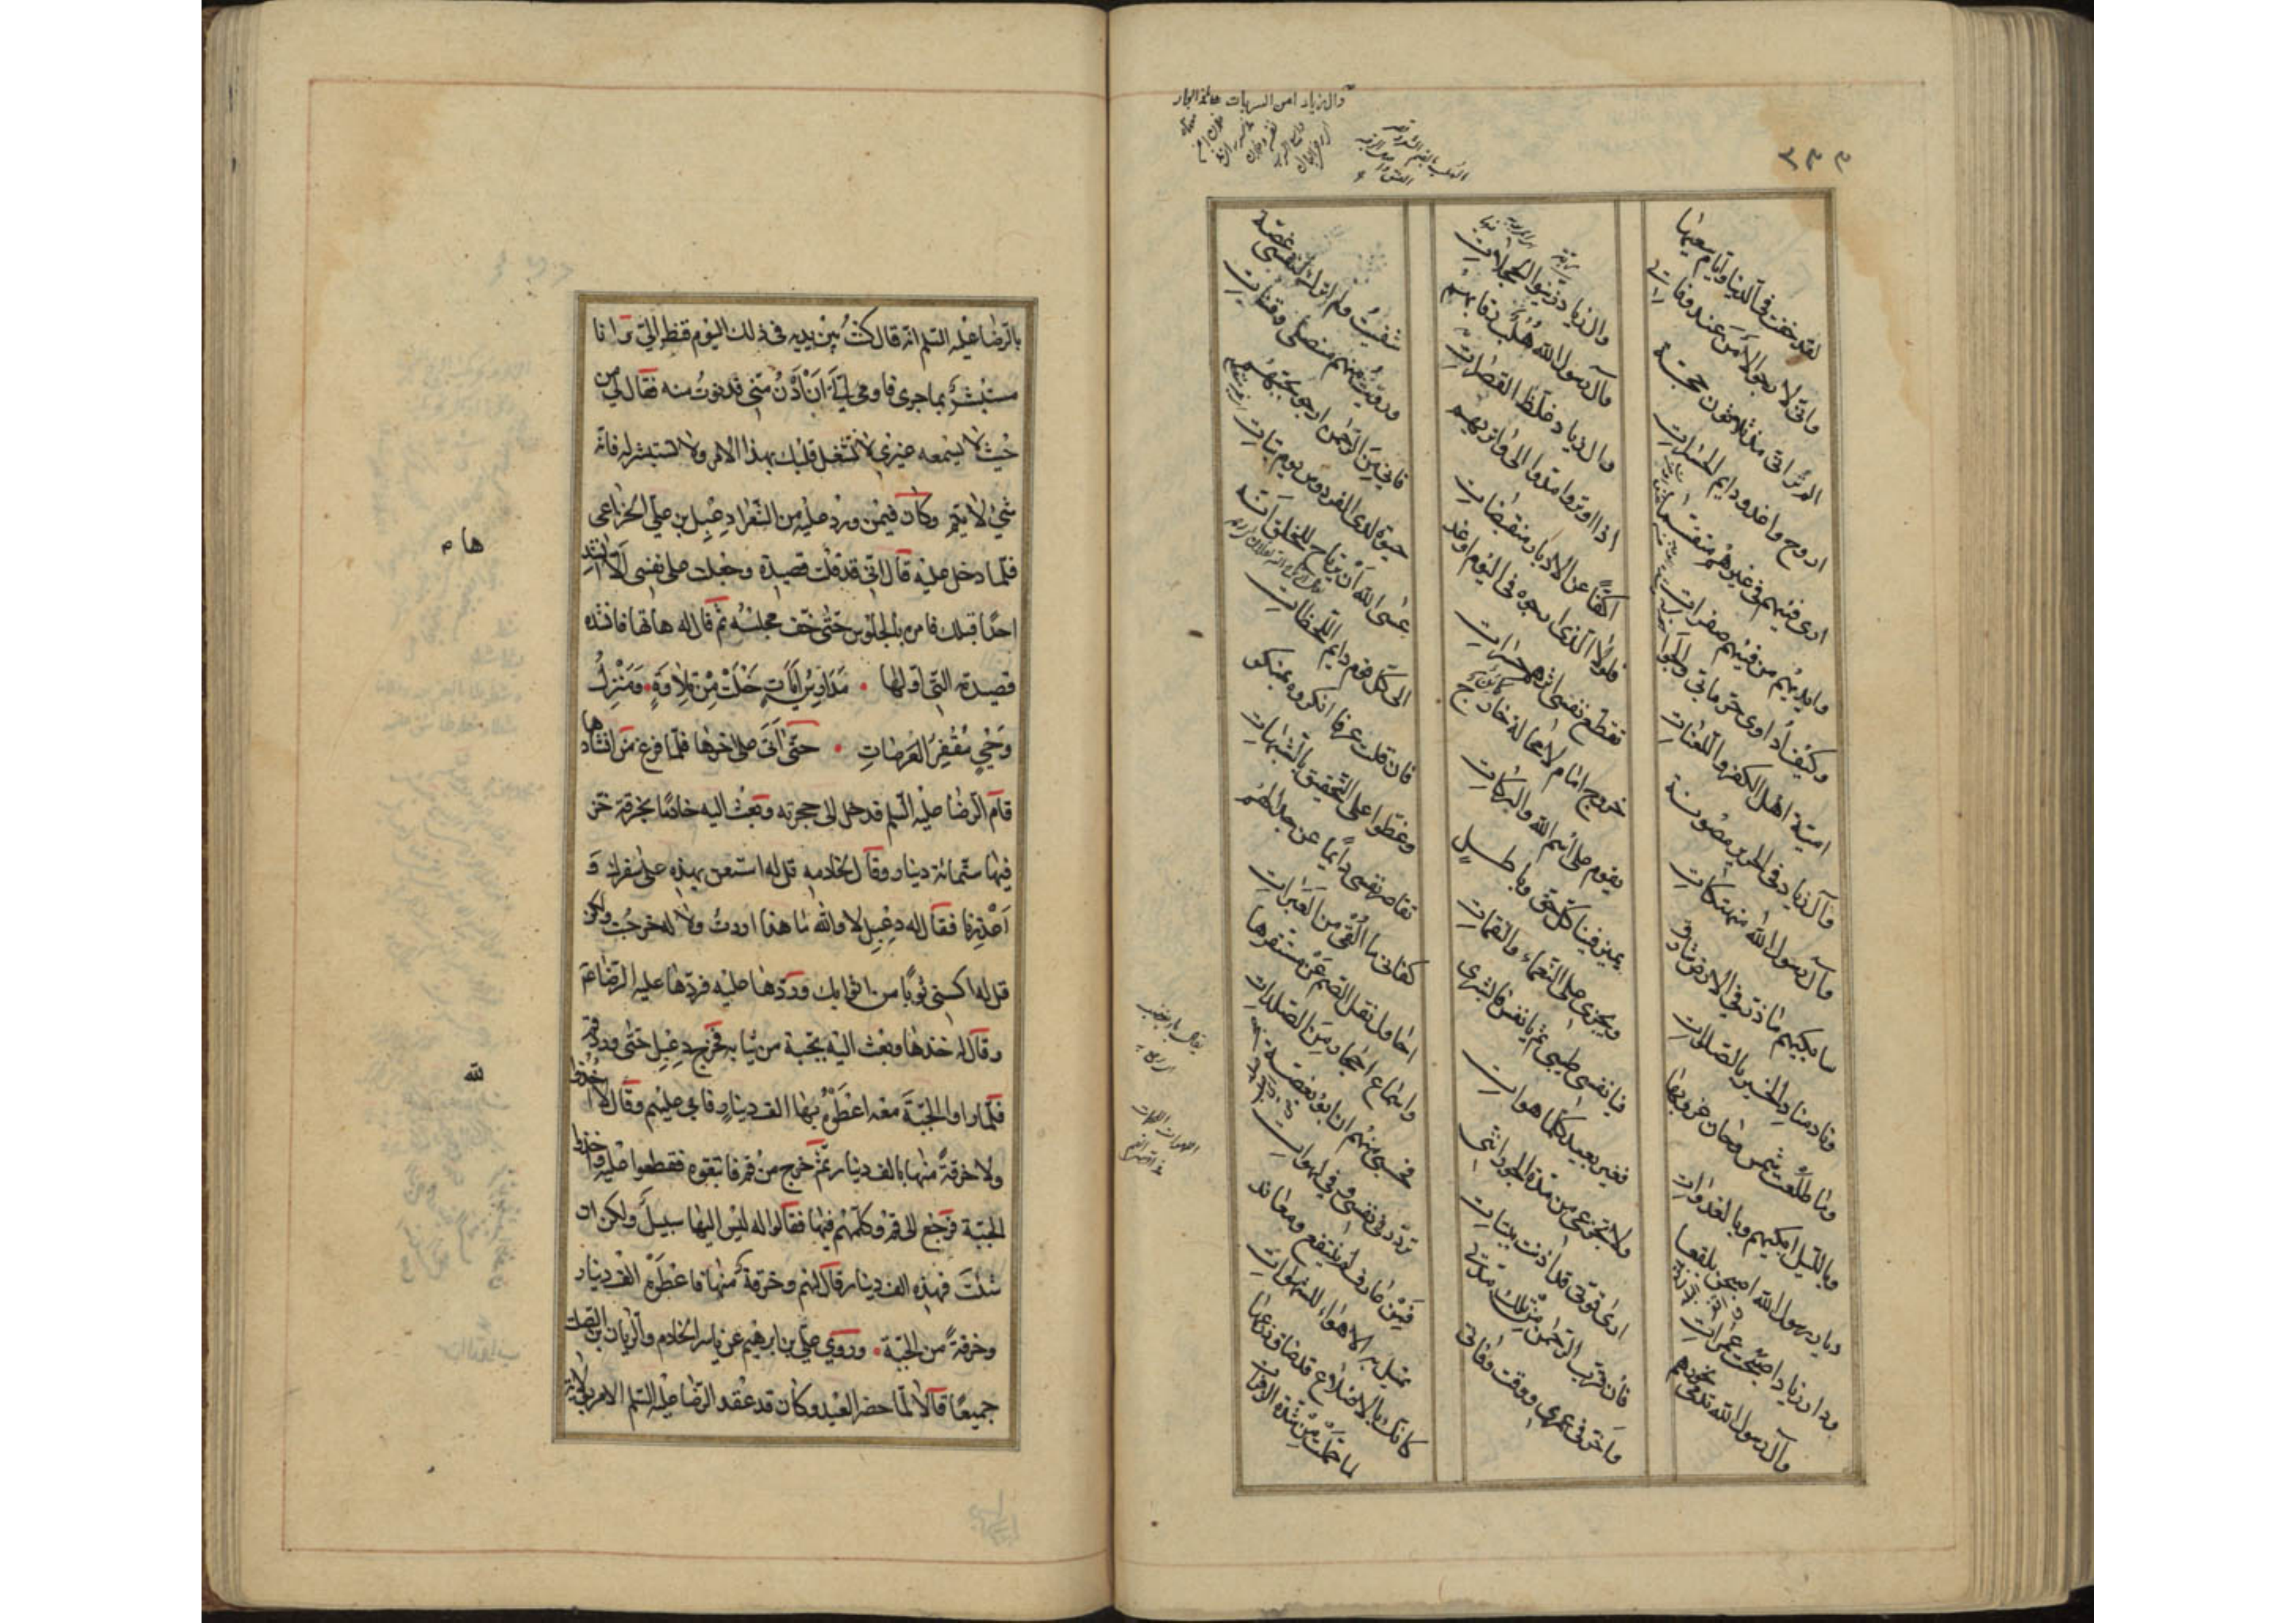 ٢٣٣
لقد خفت فى الدنيا وايام سعيها
وانى لارجو الامن عند وفات
الم تر انى مذ ثلاثون حجة
اروح واغدو دايم الحسرات
ارى فيئهم فى غيرهم متقسما
وايديهم من فيئهم صفرات
وكيف اداوى من جوى
امية اهل الكفر واللعنات
وآل زياد فى الحرير مصونة
وآل رسول الله منهتكات
سابكيهم ما ذر فى الارض شارق
ونادى مناد الخير بالصلوات
وما طلعت شمس وحان غروبها
وبالليل ابكيهم وبالغدوات
ديار رسول الله اصبحن بلقعا
ودار زياد اصبحت عمرات
وآل رسول الله تدمى نحورهم
وآل زياد زينوا الحجلات
وآل رسول الله هلب رقابهم
وآل زياد غلظ القصرات
اذا اوتروا مدوا الى واتريهم
اكفا عن الاوتار منقبضات
فلولا الذى ارجوه فى اليوم او غد
تقطع نفسى اثرهم حسرات
خروج امام لا محالة خارج
يقوم على اسم الله والبركات
يميز فينا كل حق وباطل
ويجزى على النعماء والنقمات
فيا نفس طيبى ثم يا نفس فابشرى
فغير بعيد كلما هو ات
ولا تجزعى من مدة الجور اننى
ارى قوتى قد اذنت بشتات
فان قرب الرحمن من تلك مدتى
واخر فى عمرى ووقت وفاتى
شفيت ولم اترك لنفسى غصة
ورويت منهم منصلى وقناتى
فانى من الرحمن ارجو بحبهم
حيوة لدى الفردوس يوم بتات
عسى الله ان يرتاح للخلق انه
الى كل قوم دايم اللحظات
فان قلت عرفا انكروه بمنكر
وغطوا على التحقيق بالشبهات
تقاصر نفسى دايما عن جدالهم
كفانى ما القى من العبرات
احاول نقل الصم عن مستقرها
واسماع احجار من الصلدات
فحسبى منهم ان ابوء بغصة
تردد فى نفسى وفى لهوات
فمن عارف لم ينتفع ومعاند
تميل به الاهواء للشهوات
كانك بالاضلاع قد ضاق ذرعها
لما حملت من شدة الزفرات
بالرضا عليه السلم انه قال كنت بين يديه فى ذلك اليوم فنظر الى وانا
مستبشر بما جرى فاومى الى ان ادن منى فدنوت منه فقال لى من
حيث لا يسمعه غيرى لا تشغل قلبك بهذا الامر ولا تستبشر له فانه
شىء لا يتم وكان فيمن ورد عليه من الشعراء دعبل بن على الخزاعى
فلما دخل عليه قال انى قد قلت قصيدة وجعلت على نفسى الا انشدها
احدا قبلك فامره بالجلوس حتى خف مجلسه ثم قال له هاتها فانشده
قصيدته التى اولها مدارس آيات خلت من تلاوة ومنزل
وحى مقفر العرصات حتى اتى على اخرها فلما فرغ من انشادها
قام الرضا عليه السلم فدخل الى حجرته وبعث اليه خادما بخرقة خز
فيها ستمائة دينار وقال لخادمه قل له استعن بهذه على سفرك و
اعذرنا فقال له دعبل لا والله ما هذا اردت ولا له خرجت ولكن
قل له اكسنى ثوبا من اثوابك وردها عليه فردها عليه الرضا ع
وقال له خذها وبعث اليه بجبة من ثيابه فخرج دعبل حتى ورد قم
فلما راوا الجبة معه اعطوه بها الف دينار فابى عليهم وقال لا
ولا خرقة منها بالف دينار ثم خرج من قم فاتبعوه فقطعوا عليه واخذوا
الجبة فرجع الى قم وكلمهم فيها فقالوا له ليس اليها سبيل ولكن ان
شئت فهذه الف دينار قال لهم وخرقة منها فاعطوه الف دينار
وخرقة من الجبة وروى على بن ابرهيم عن ياسر الخادم والريان بن الصلت
جميعا قالا لما حضر العيد وكان قد عقد للرضا عليه السلم الامر بولاية